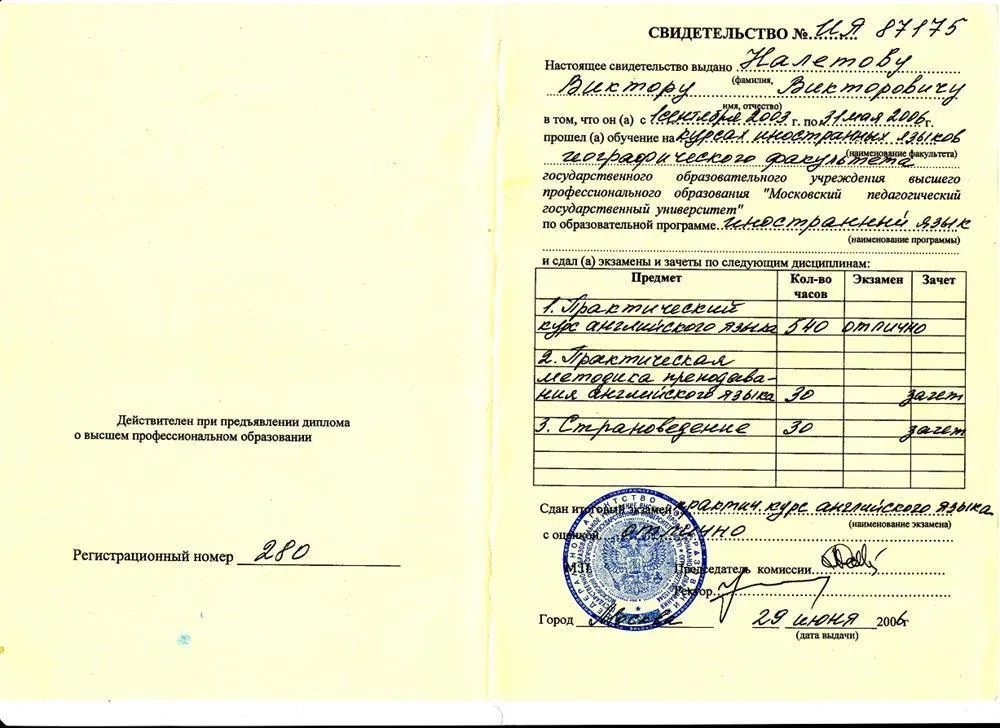 Действителен при предъявлении диплома
о высшем профессиональном образовании
Регистрационный номер 280
СВИДЕТЕЛЬСТВО № ИЯ 87175
Настоящее свидетельство выдано Налетову
(фамилия,
Виктору Викторовичу
имя, отчество)
в том, что он (а) с 1 сентября 2003 г. по 31 мая 2006 г.
прошел (а) обучение на курсах иностранных языков
(наименование факультета)
географического факультета
государственного образовательного учреждения высшего
профессионального образования "Московский педагогический
государственный университет"
по образовательной программе иностранный язык
(наименование программы)
и сдал (а) экзамены и зачеты по следующим дисциплинам:
Предмет Кол-во часов Экзамен Зачет
1. Практический
курс английского языка 540 отлично
2. Практическая
методика преподава-
ния английского языка 30 зачет
3. Страноведение 30 зачет
Сдан итоговый экзамен практич. курс английского языка
(наименование экзамена)
с оценкой отлично
М.П. Председатель комиссии
Ректор
Город Москва 29 июня 2006
(дата выдачи)